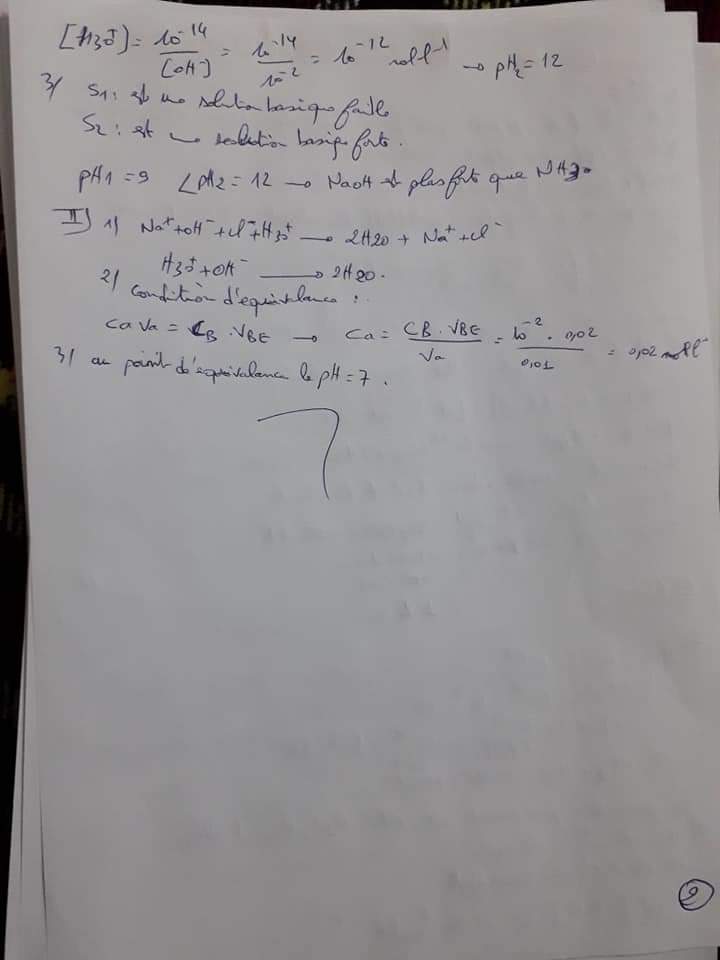 [H3O+] = 10^-14 / [OH-] = 10^-14 / 10^-2 = 10^-12 moll^-1 → pH2 = 12
3/ S1: est une solution basique faible
S2: est une solution basique forte.
pH1 = 9 < pH2 = 12 → NaOH est plus forte que NH3.
II) 1) Na+ + OH- + Cl- + H3O+ → 2H2O + Na+ + Cl-
H3O+ + OH- → 2H2O.
2) Condition d'équivalence :
CaVa = CB . VBE → Ca = CB . VBE / Va = 10^-2 . 0,02 / 0,01 = 0,02 moll^-
3/ au point d'équivalence le pH = 7.
2